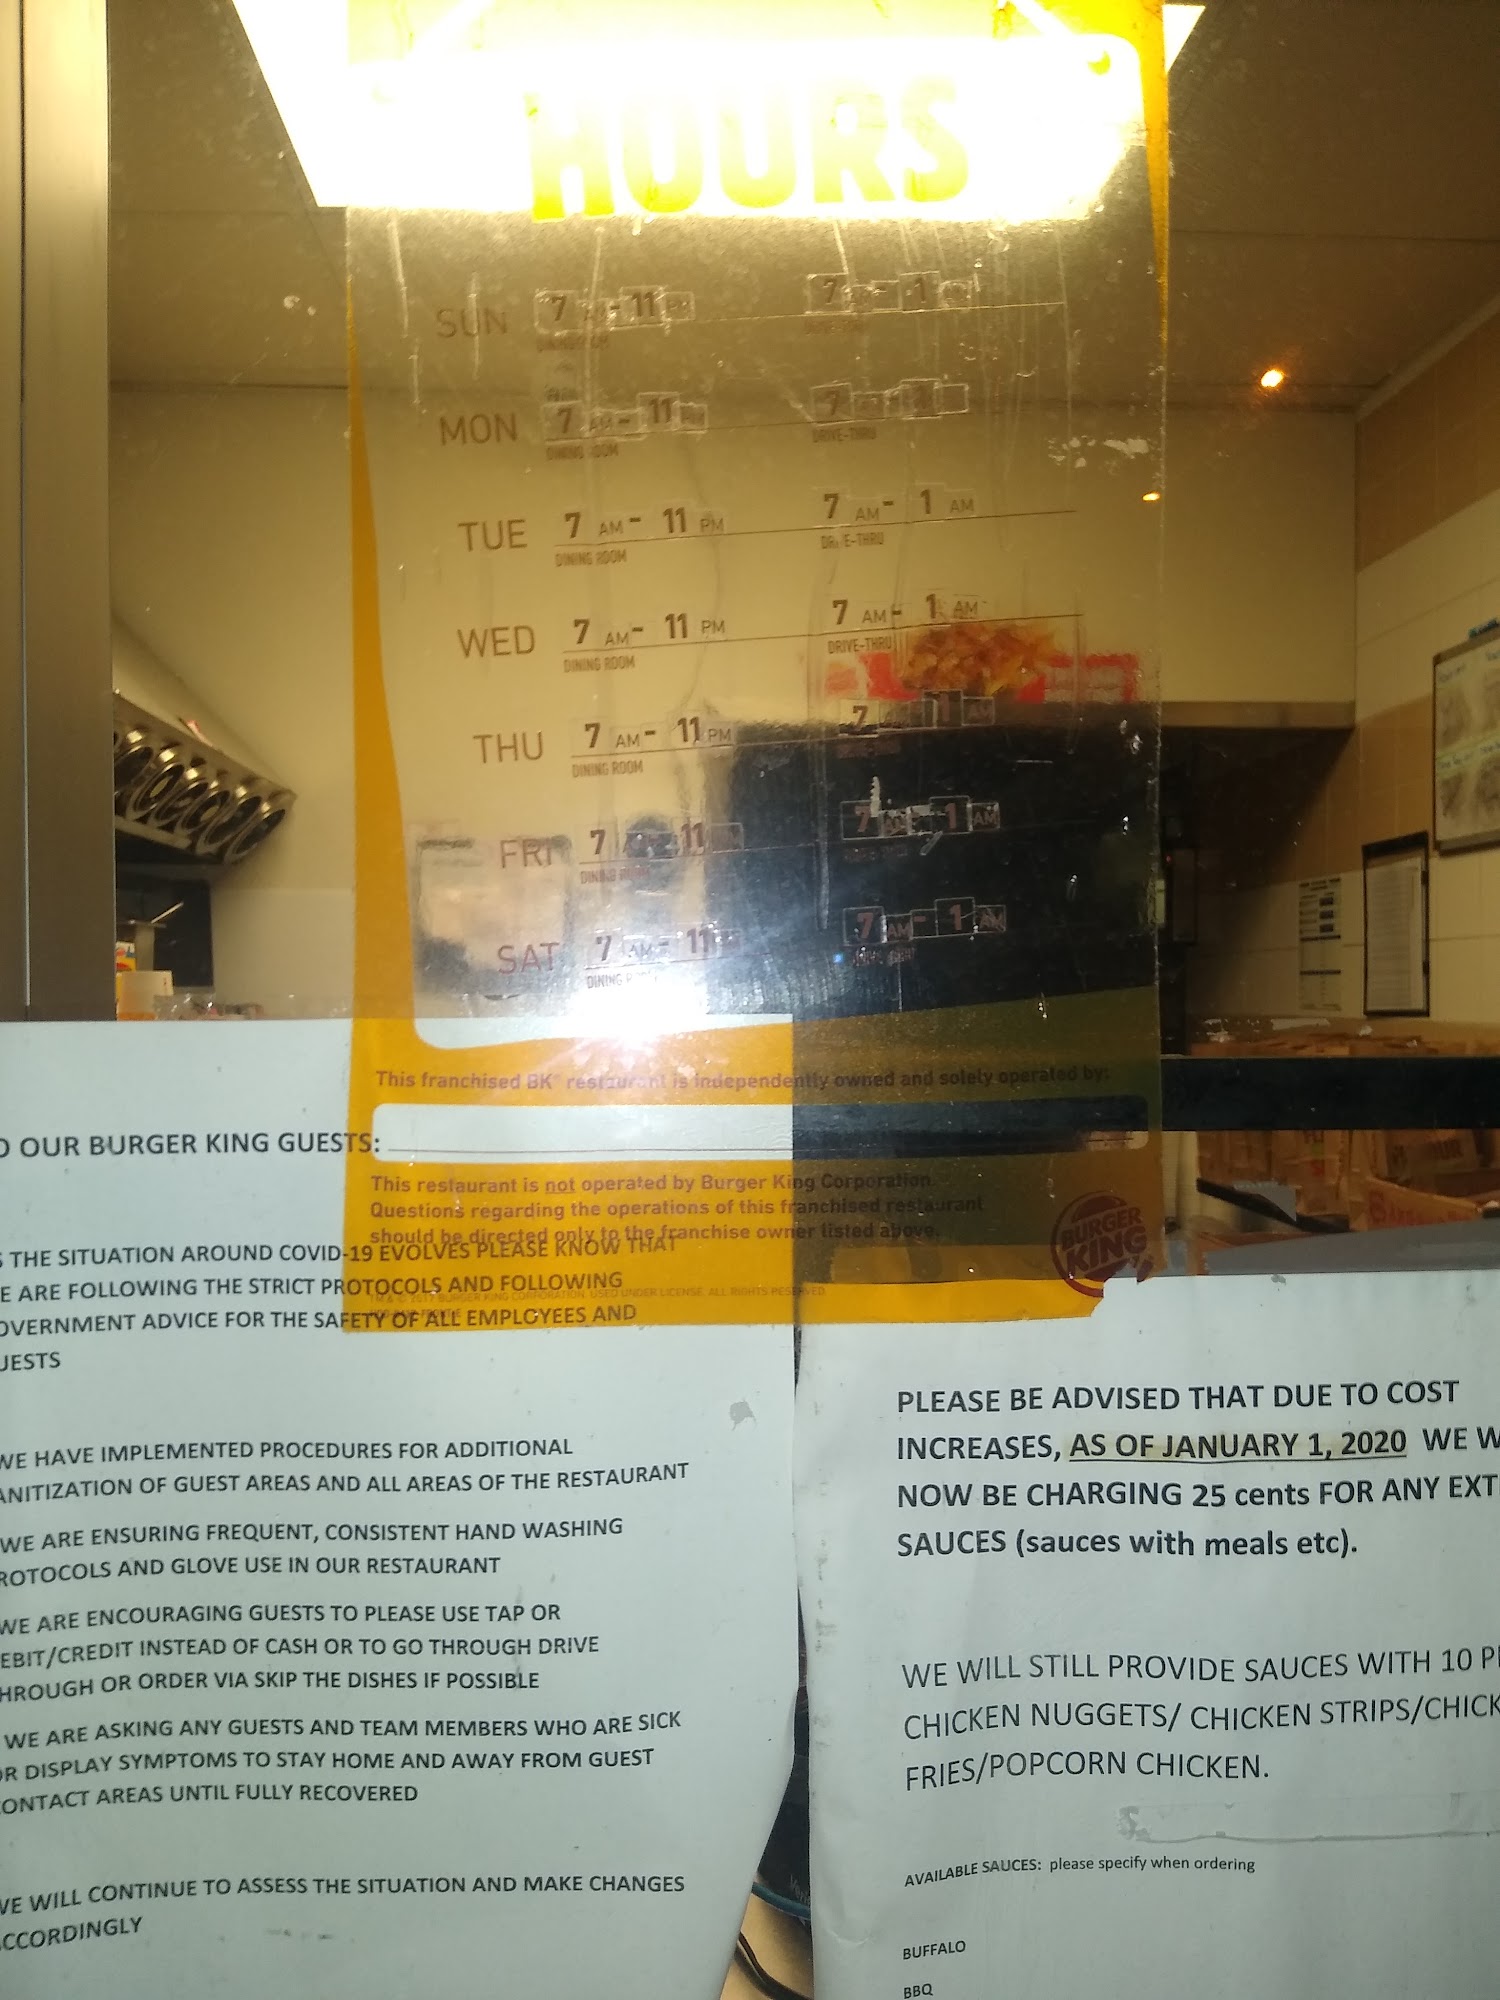 HOURS
SUN 7 - 11 PM 7 - 1
DINING ROOM
MON 7 AM - 11 PM 7
DINING ROOM DRIVE-THRU
TUE 7 AM - 11 PM 7 AM - 1 AM
DINING ROOM DRIVE-THRU
WED 7 AM - 11 PM 7 AM - 1 AM
DINING ROOM DRIVE-THRU
THU 7 AM - 11 PM 7 1 AM
DINING ROOM
FRI 7 11 7 - 1 AM
DINING ROOM
SAT 7 AM - 11 7 AM - 1 AM
DINING
This franchised BK® restaurant is independently owned and solely operated by:
This restaurant is not operated by Burger King Corporation.
Questions regarding the operations of this franchised restaurant
should be directed only to the franchise owner listed above.
BURGER
KING
TM & © 2017 BURGER KING CORPORATION. USED UNDER LICENSE. ALL RIGHTS RESERVED.
O OUR BURGER KING GUESTS:
S THE SITUATION AROUND COVID-19 EVOLVES PLEASE KNOW THAT
E ARE FOLLOWING THE STRICT PROTOCOLS AND FOLLOWING
OVERNMENT ADVICE FOR THE SAFETY OF ALL EMPLOYEES AND
UESTS
WE HAVE IMPLEMENTED PROCEDURES FOR ADDITIONAL
ANITIZATION OF GUEST AREAS AND ALL AREAS OF THE RESTAURANT
WE ARE ENSURING FREQUENT, CONSISTENT HAND WASHING
ROTOCOLS AND GLOVE USE IN OUR RESTAURANT
WE ARE ENCOURAGING GUESTS TO PLEASE USE TAP OR
EBIT/CREDIT INSTEAD OF CASH OR TO GO THROUGH DRIVE
HROUGH OR ORDER VIA SKIP THE DISHES IF POSSIBLE
WE ARE ASKING ANY GUESTS AND TEAM MEMBERS WHO ARE SICK
OR DISPLAY SYMPTOMS TO STAY HOME AND AWAY FROM GUEST
ONTACT AREAS UNTIL FULLY RECOVERED
WE WILL CONTINUE TO ASSESS THE SITUATION AND MAKE CHANGES
CCORDINGLY
PLEASE BE ADVISED THAT DUE TO COST
INCREASES, AS OF JANUARY 1, 2020 WE W
NOW BE CHARGING 25 cents FOR ANY EXT
SAUCES (sauces with meals etc).
WE WILL STILL PROVIDE SAUCES WITH 10 P
CHICKEN NUGGETS/ CHICKEN STRIPS/CHICK
FRIES/POPCORN CHICKEN.
AVAILABLE SAUCES: please specify when ordering
BUFFALO
BBQ